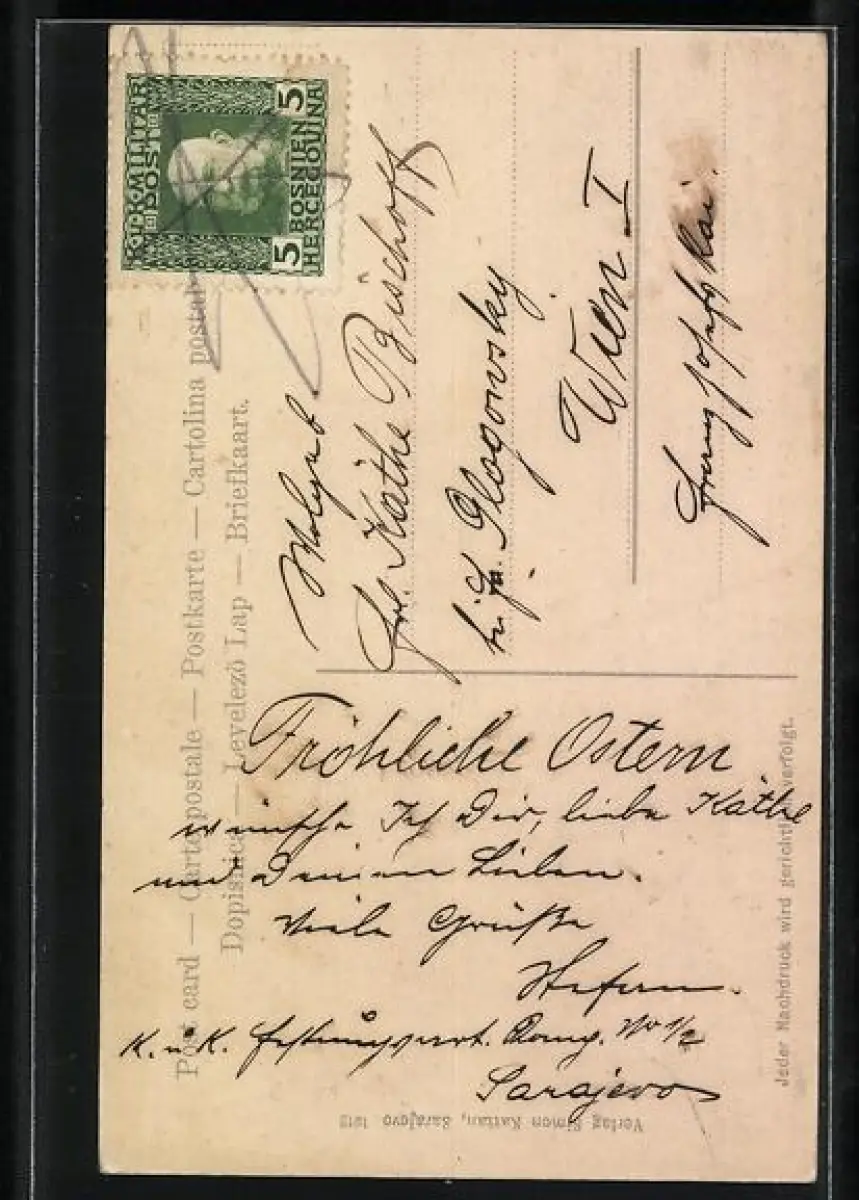 K.U.K. MILITÄR
POST
5 BOSNIEN 5
HERCEGOVINA
Post card — Carte postale — Postkarte — Cartolina postale
Dopisnica — Levelező Lap — Briefkaart.
Wolgeb.
Frl. Käthe Bischoff
bei Fr. Glogowsky
Wien I
Franz Josefs Kai.
Fröhliche Ostern
wünsche Ich Dir, liebe Käthe
und Deinen Lieben.
Viele Grüße
Stefan.
K. u. K. Festungsart. Komp. No 1/2
Sarajevo
Verlag Simon Kattan, Sarajevo 1913
Jeder Nachdruck wird gerichtlich verfolgt.